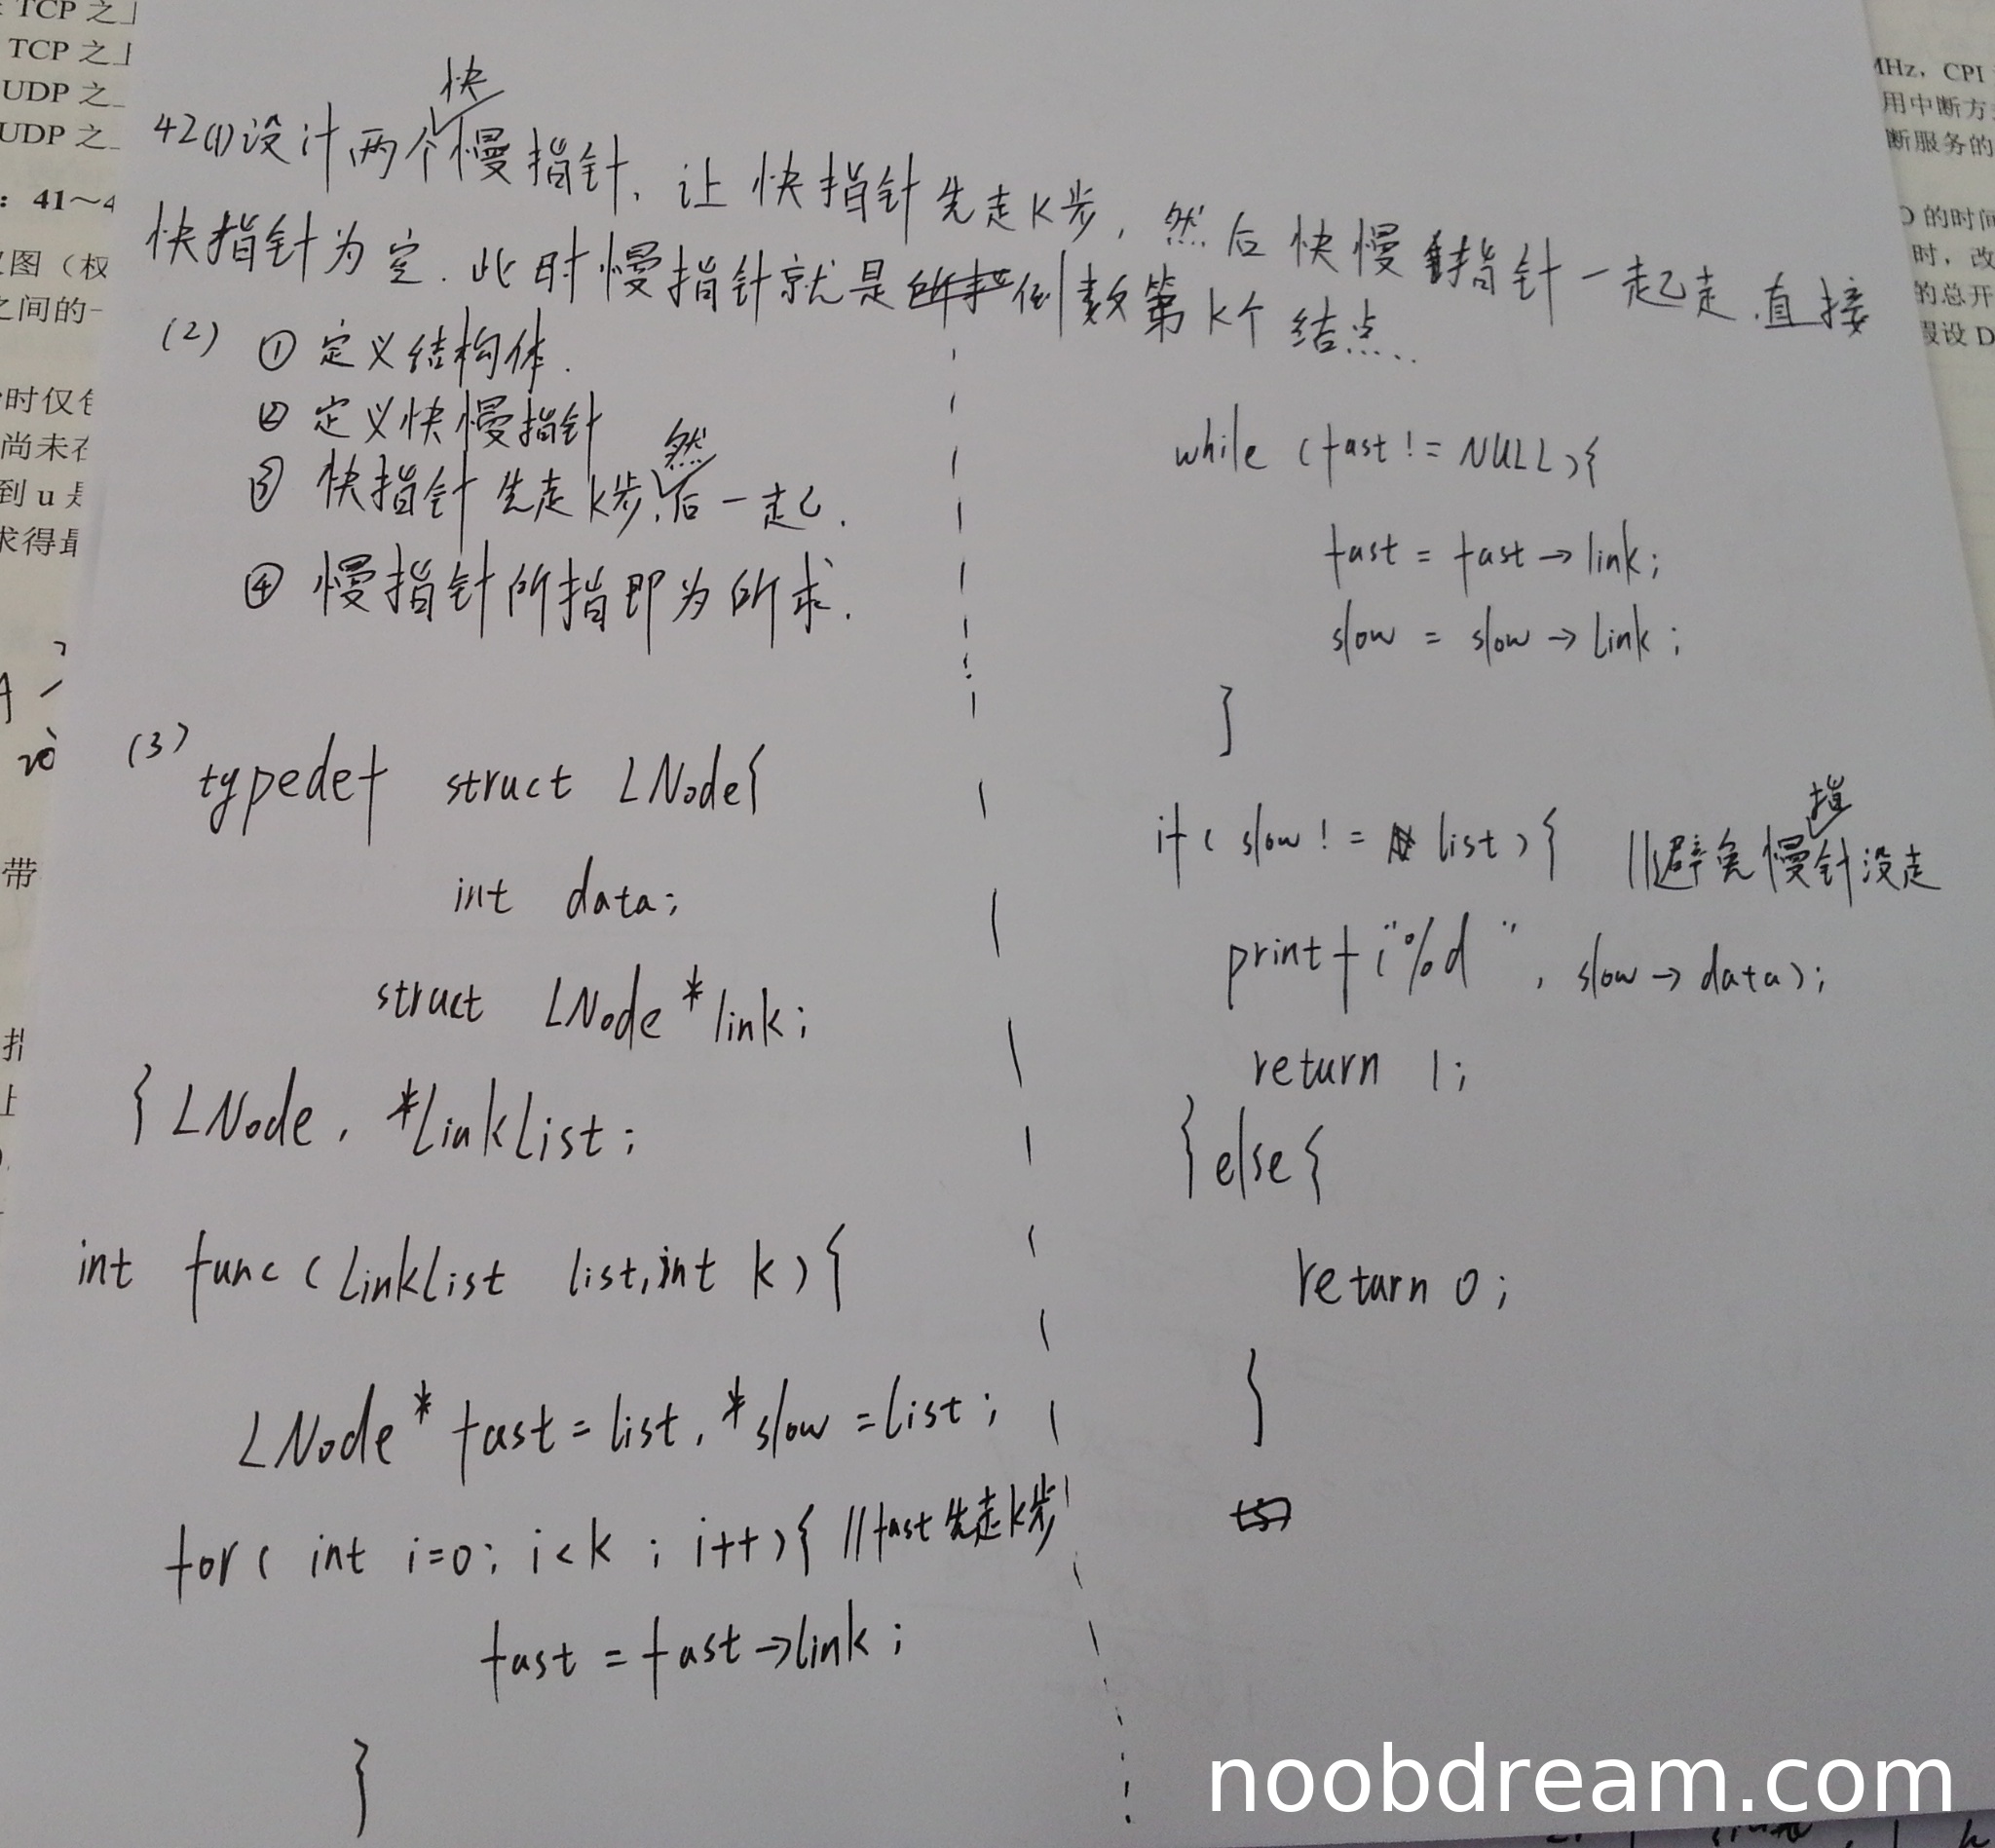 TCP 之
TCP 之
UDP 之
UDP 之
：41～4
图（权
之间的一
时仅包
尚未在
到 u 是
求得最
带
MHz，CPI
用中断方
断服务的
的时间
时，改
的总开
设 D
42(1)设计两个快慢指针，让快指针先走K步，然后快慢指针一起走，直接
快指针为空．此时慢指针就是倒数第K个结点．
(2) ① 定义结构体．
② 定义快慢指针
③ 快指针先走K步，然后一起．
④ 慢指针所指即为所求．
(3) typedef struct LNode{
int data;
struct LNode *link;
} LNode, *LinkList;
int func (LinkList list, int k){
LNode* fast = list, *slow = list;
for( int i=0; i<k ; i++){ //fast先走K步
fast = fast->link;
}
while (fast != NULL){
fast = fast->link;
slow = slow->link;
}
if( slow != list){ //避免慢指针没走
printf("%d ", slow->data);
return 1;
}else{
return 0;
}
noobdream.com